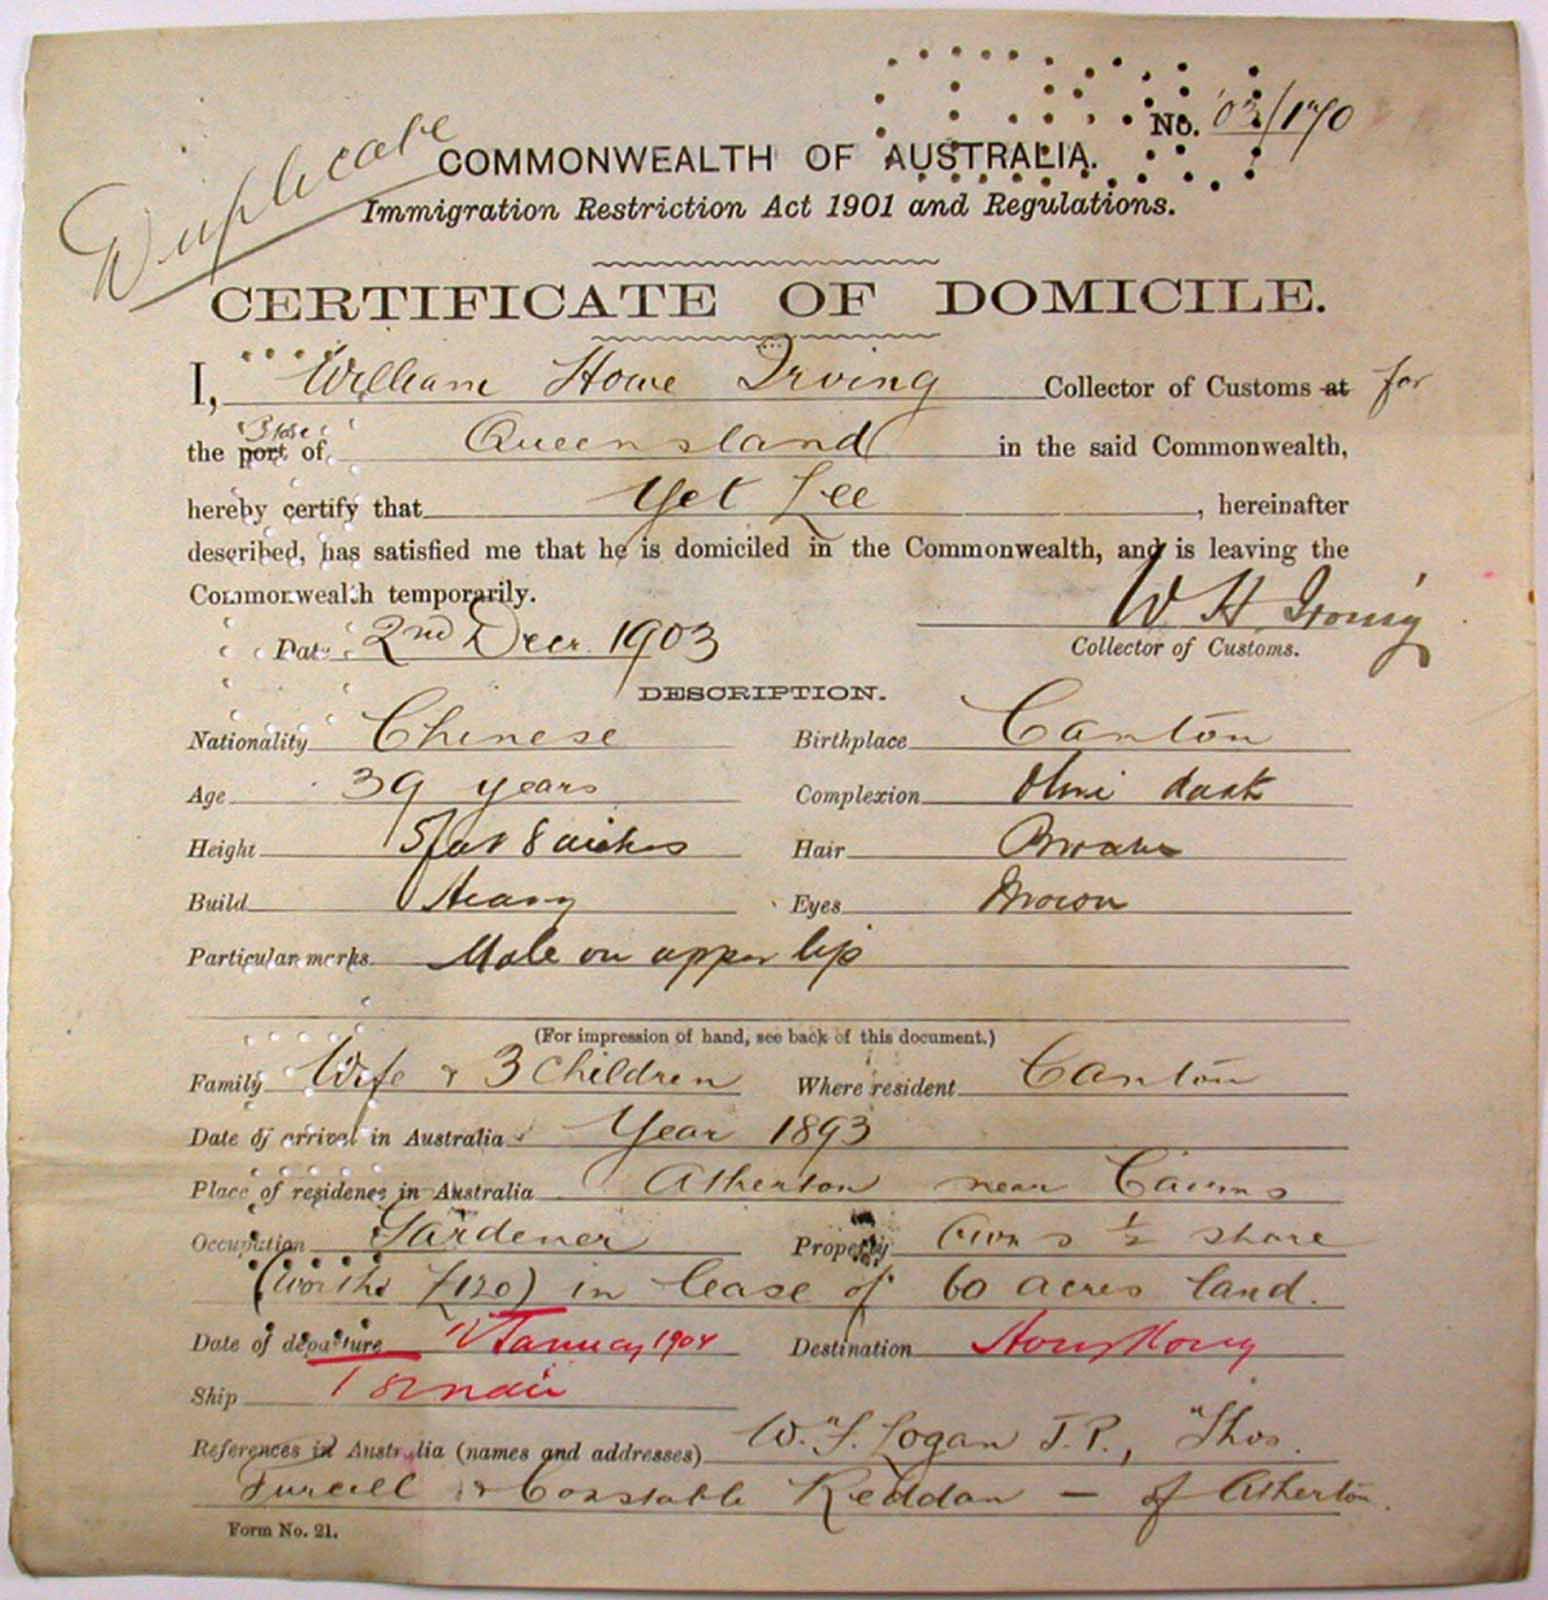 No. 03/170
Duplicate
COMMONWEALTH OF AUSTRALIA.
Immigration Restriction Act 1901 and Regulations.
CERTIFICATE OF DOMICILE.
I, William Howe Irving Collector of Customs at for
State
the port of Queensland in the said Commonwealth,
hereby certify that Yet Lee, hereinafter
described, has satisfied me that he is domiciled in the Commonwealth, and is leaving the
Commonwealth temporarily.
W H Irving
Date 2nd Decr. 1903
Collector of Customs.
DESCRIPTION.
Nationality Chinese Birthplace Canton
Age 39 years Complexion Olive dark
Height 5 feet 8 inches Hair Brown
Build Heavy Eyes Brown
Particular marks Mole on upper lip
(For impression of hand, see back of this document.)
Family Wife & 3 Children Where resident Canton
Date of arrival in Australia Year 1893
Place of residence in Australia Atherton near Cairns
Occupation Gardener Property Owns ½ share
(worth £120) in lease of 60 acres land.
Date of departure January 1904 Destination Hong Kong
Ship
References in Australia (names and addresses) W. F. Logan J.P., Thos.
& Constable Reddan — of Atherton.
Form No. 21.